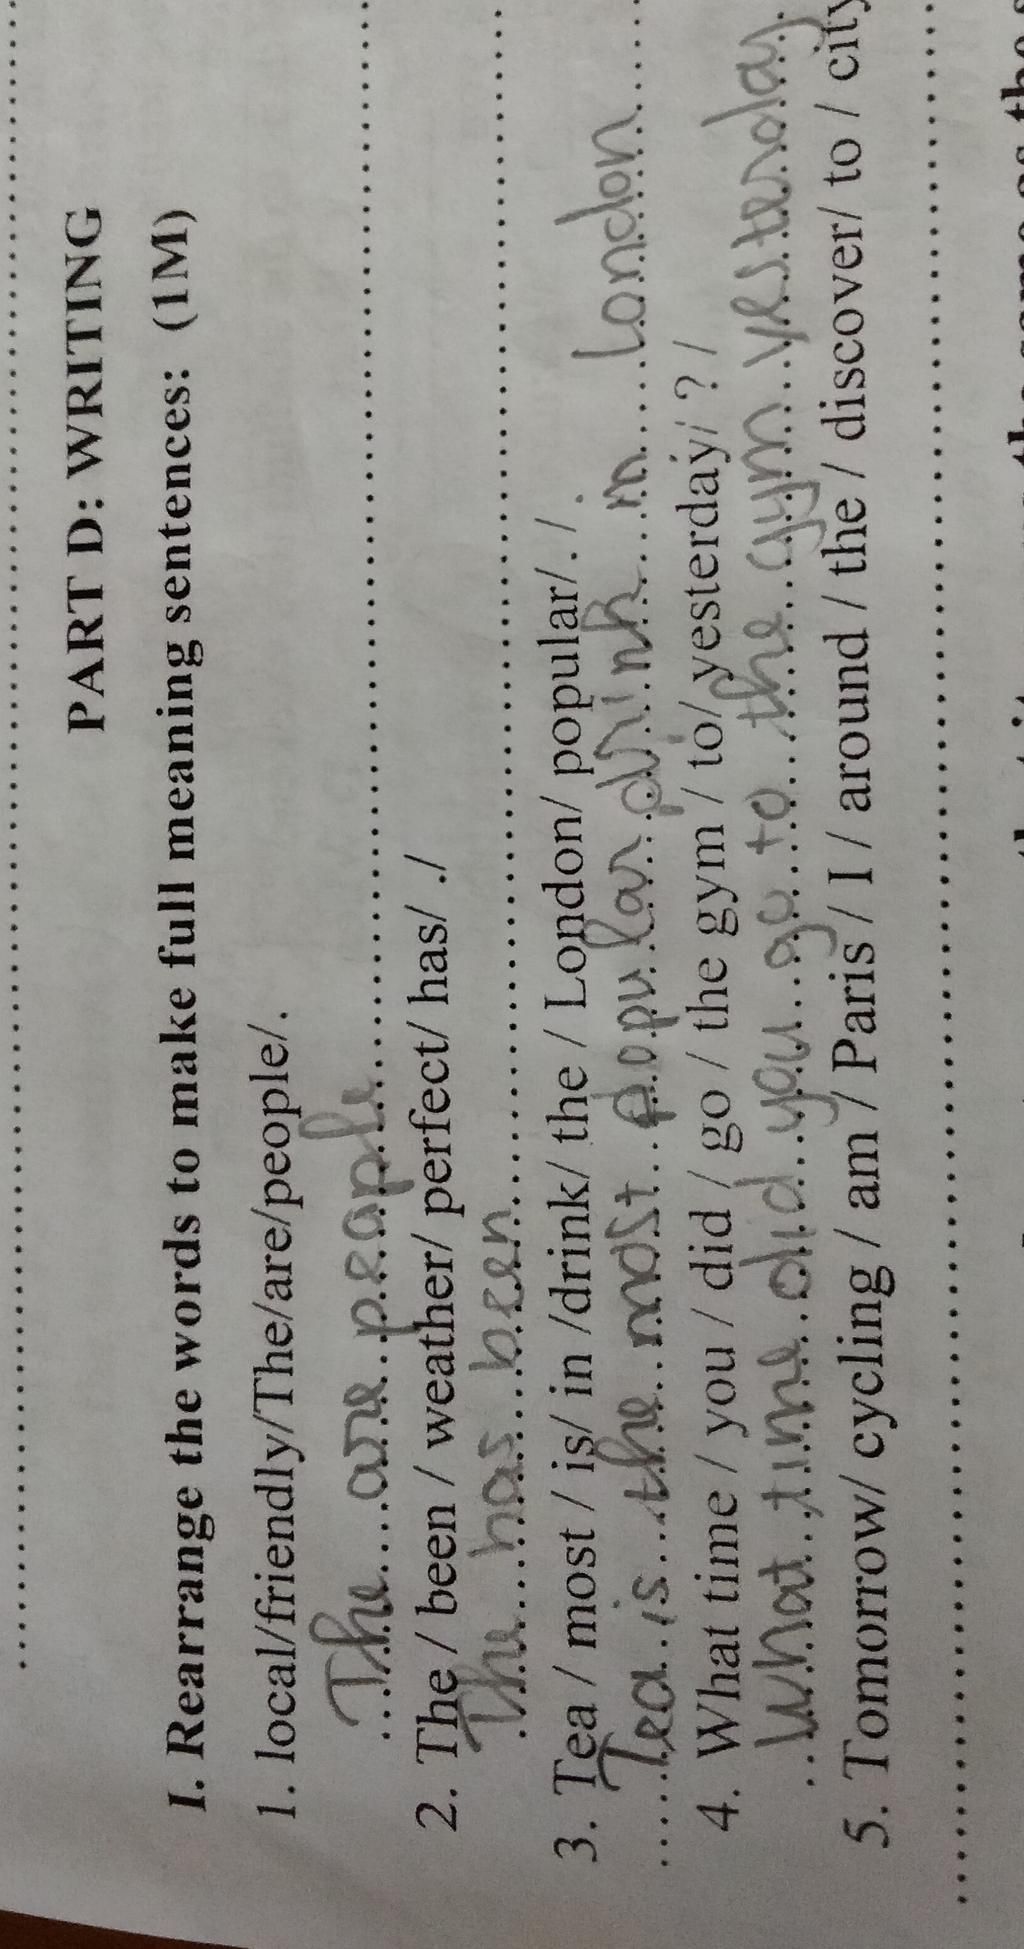 PART D: WRITING
I. Rearrange the words to make full meaning sentences: (1M)
1. local/friendly/The/are/people/.
The are people
2. The / been / weather/ perfect/ has/ ./
The has been
3. Tea / most / is/ in /drink/ the / London/ popular/. /.
Tea is the most popular drink in London
4. What time / you / did / go / the gym / to/ yesterday/ ? /
What time did you go to the gym yesterday
5. Tomorrow/ cycling / am / Paris / I / around / the / discover/ to / city